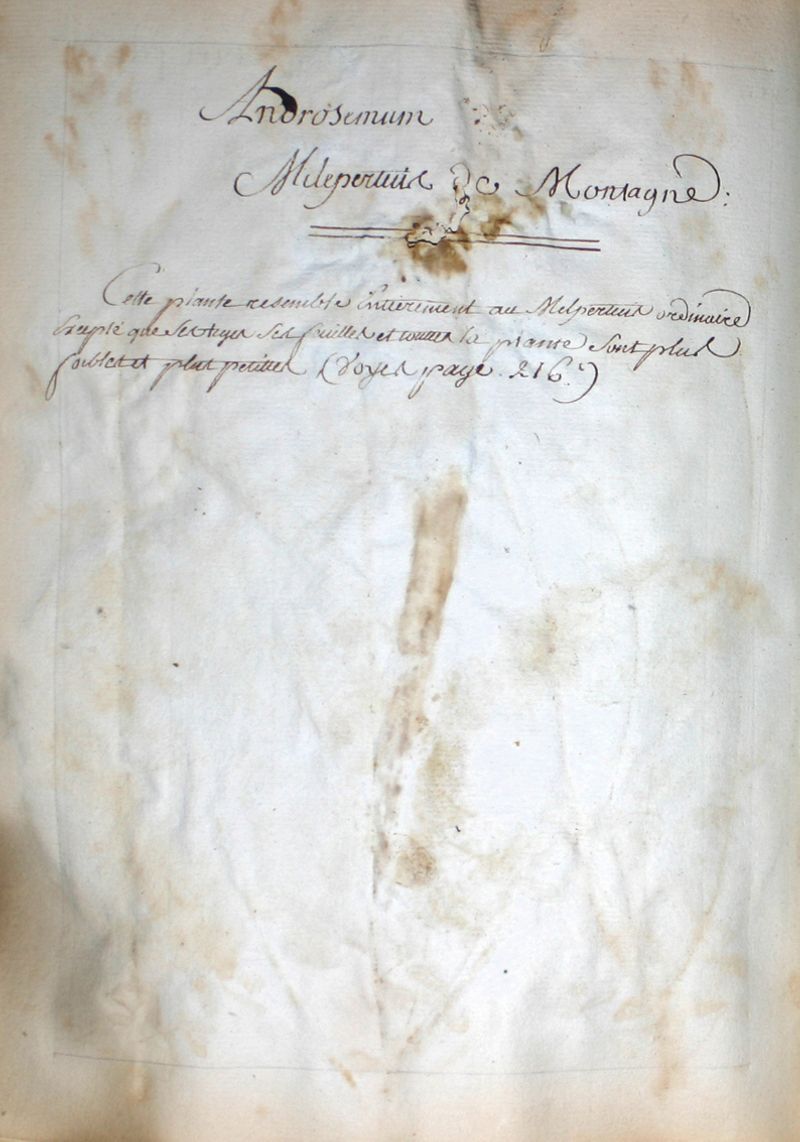 Androsemum
Milepertuis de Montagne.
Cette plante resemble Entierement au Milpertuis ordinaire
Exepté que Ses tiges Ses feuilles et touttes la plante Sont plus
foibles et plus petittes (Voyes page. 216.)